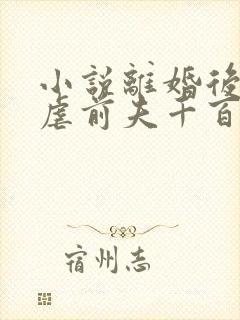 小説離婚後
虐前夫千百
宿州志